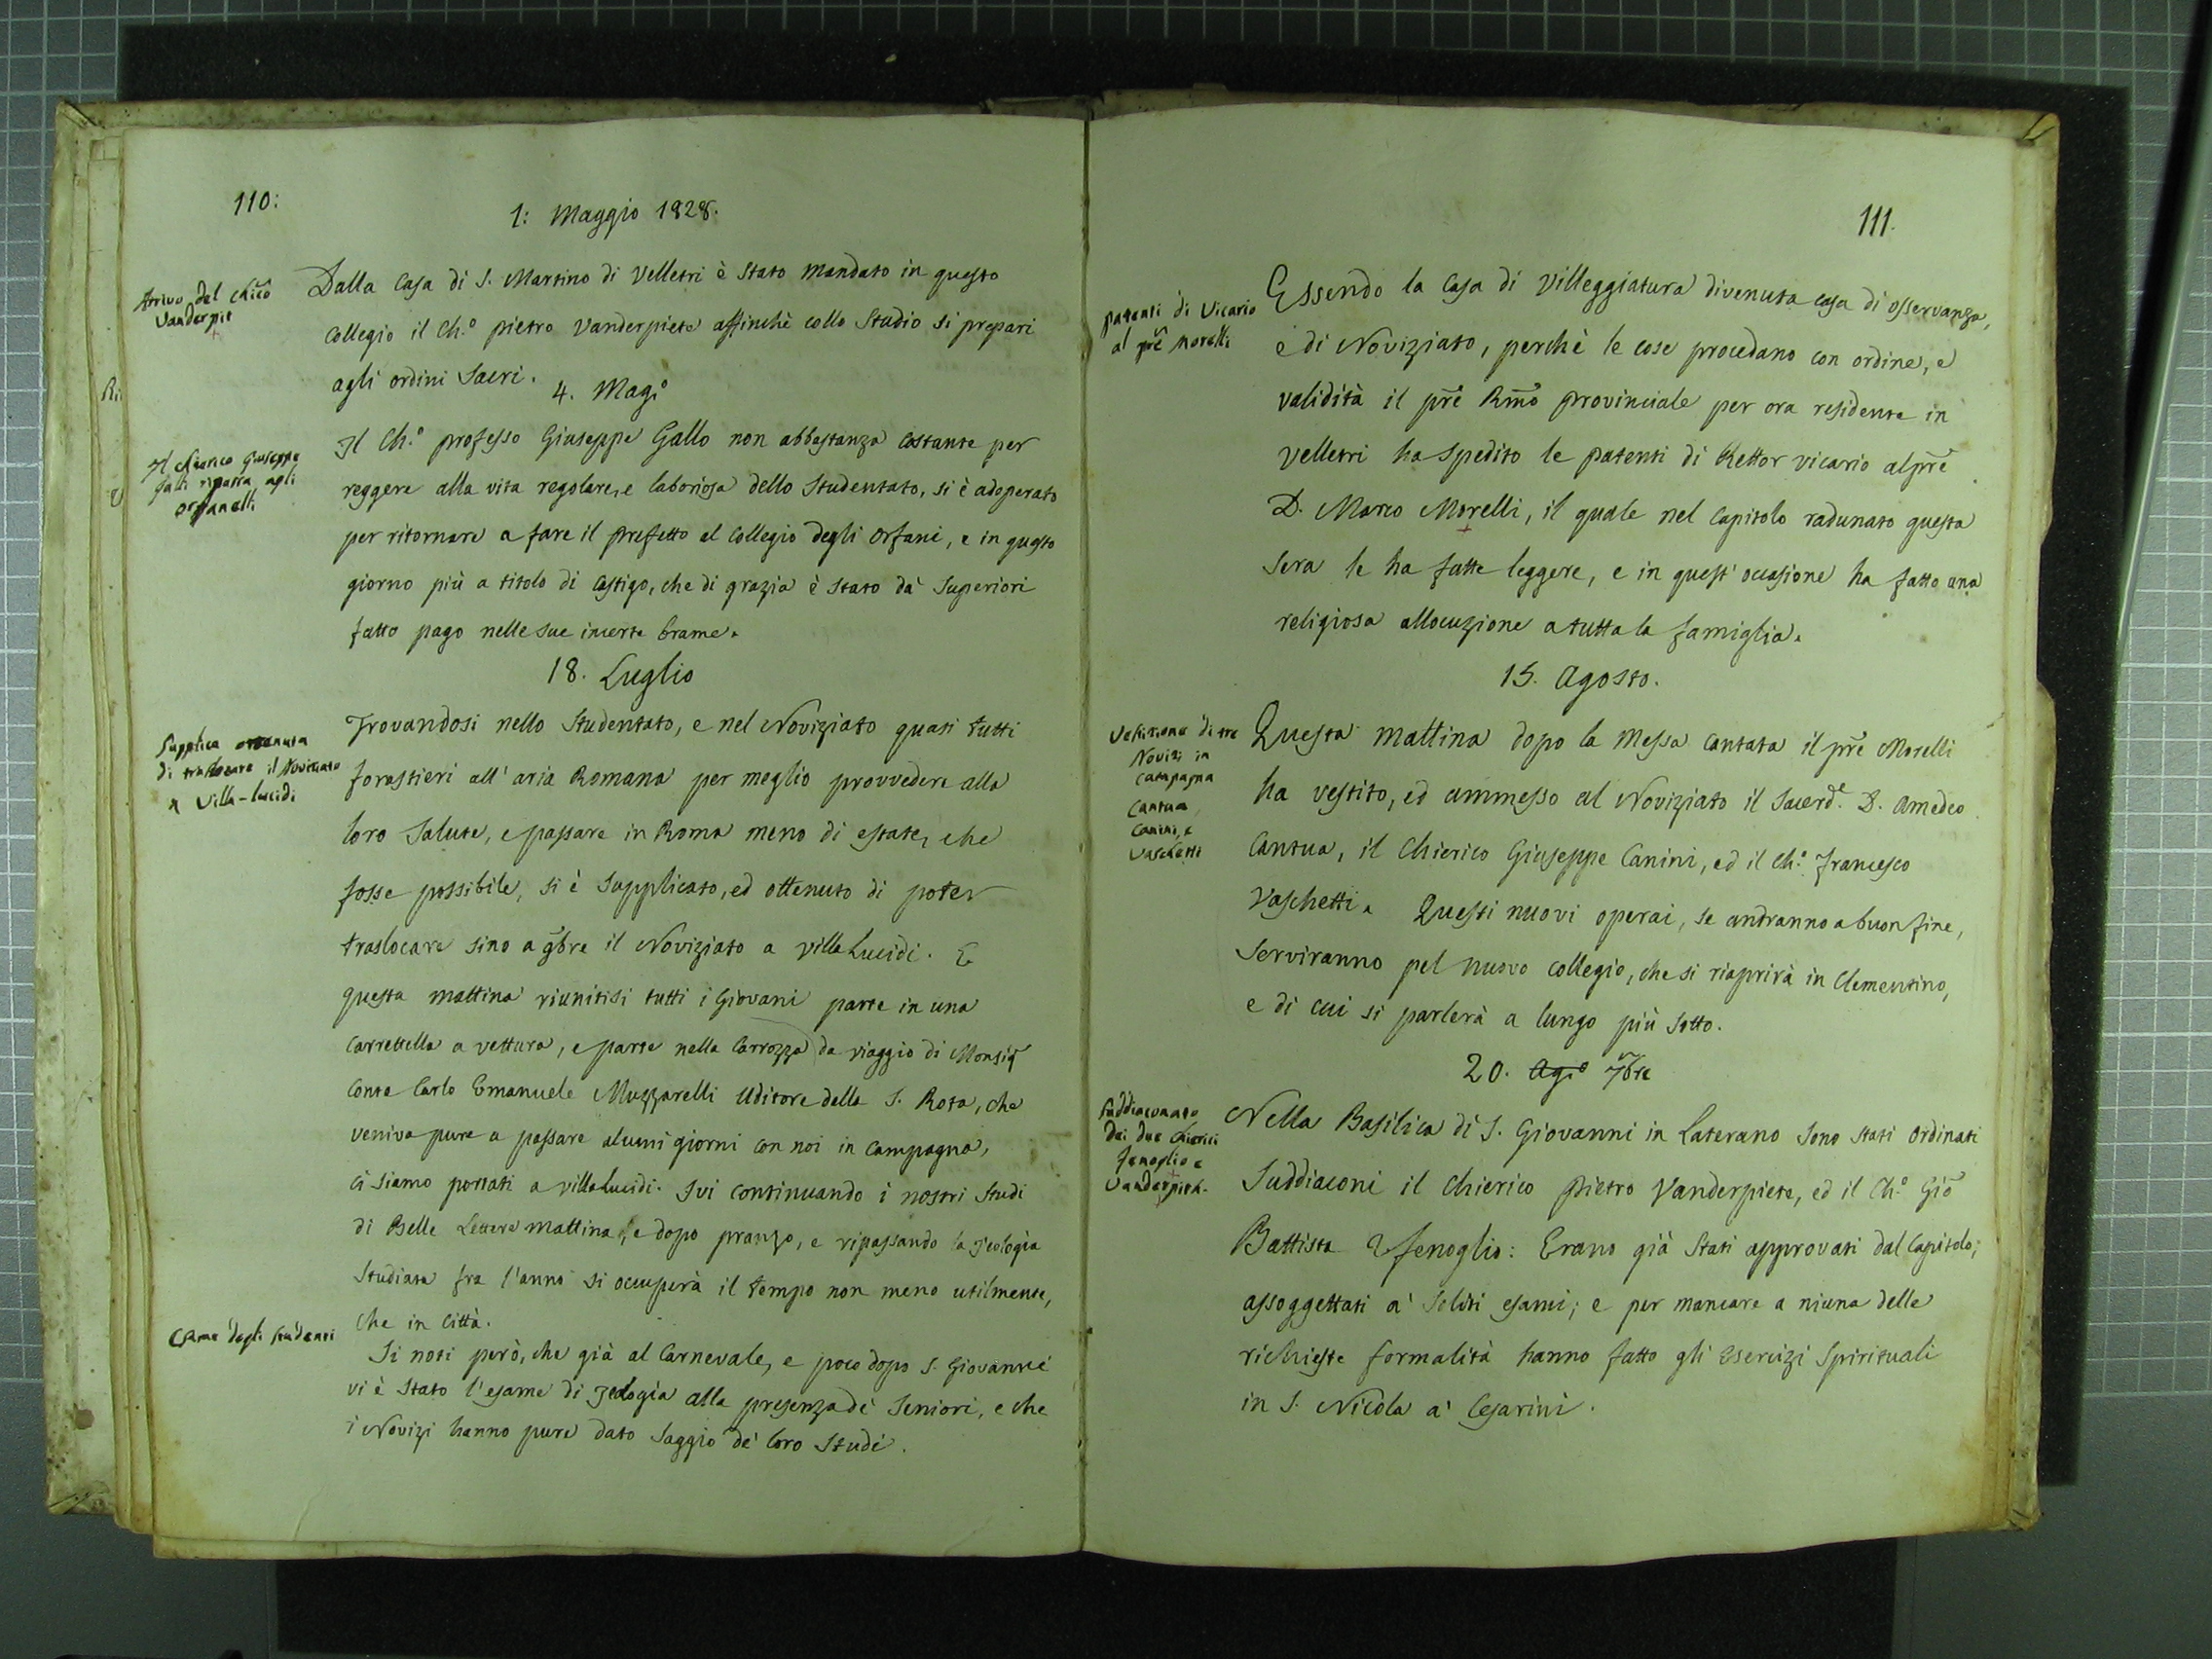 110:
1: Maggio 1828.
Arrivo del Chico
Vanderpit
Dalla Casa di S. Martino di Velletri è stato mandato in questo
Collegio il Ch.º pietro Vanderpiete affinchè collo Studio si prepari
agli ordini Sacri.
4. Mag.º
Il Chierico Giuseppe
Galli ripassa agli
Orfanelli
Il Ch.º professo Giuseppe Gallo non abbastanza costante per
reggere alla vita regolare, e laboriosa dello Studentato, si è adoperato
per ritornare a fare il prefetto al Collegio degli Orfani, e in questo
giorno più a titolo di castigo, che di grazia è stato da' Superiori
fatto pago nelle sue incerte brame.
18. Luglio
Supplica ottenuta
di traslocare il Noviziato
a Villa-lucidi
Trovandosi nello Studentato, e nel Noviziato quasi tutti
forastieri all'aria Romana per meglio provvedere alla
loro Salute, e passare in Roma meno di estate, che
fosse possibile, si è supplicato, ed ottenuto di poter
traslocare sino a 9bre il Noviziato a villa Lucidi. E
questa mattina riunitisi tutti i Giovani parte in una
Carrettella a vettura, e parte nella Carrozza da viaggio di Monsig
Conte Carlo Emanuele Muzzarelli Uditore della S. Rota, che
veniva pure a passare alcuni giorni con noi in Campagna,
ci siamo portati a villa Lucidi. Ivi continuando i nostri Studi
di Belle Lettere mattina, e dopo pranzo, e ripassando la Teologia
Studiata fra l'anno si occuperà il tempo non meno utilmente,
che in Città.
Esame degli studenti
Si noti però, che già al Carnevale, e poco dopo S. Giovanni
vi è stato l'esame di Teologia alla presenza de' Seniori, e che
i Novizi hanno pure dato Saggio de' loro Studi.
111.
patenti di Vicario
al pre Morelli
Essendo la Casa di Villeggiatura divenuta casa di osservanza,
e di Noviziato, perchè le cose procedano con ordine, e
validità il pre Rmo provinciale per ora residente in
Velletri ha spedito le patenti di Rettor vicario al pre
D. Marco Morelli, il quale nel Capitolo radunato questa
sera le ha fatte leggere, e in quest'occasione ha fatto una
religiosa allocuzione a tutta la famiglia.
15. Agosto.
Vestizione di tre
Novizi in
Campagna
Cantua,
Canini, e
Vaschetti
Questa mattina dopo la Messa cantata il pre Morelli
ha vestito, ed ammesso al Noviziato il Sacerd.e D. Amedeo
Cantua, il Chierico Giuseppe Canini, ed il Ch.º Francesco
Vaschetti. Questi nuovi operai, se andranno a buon fine,
serviranno pel nuovo collegio, che si riaprirà in Clementino,
e di cui si parlerà a lungo più sotto.
20. Ag.º 7bre
Suddiaconato
dei due Chierici
Fenoglio e
Vanderpiet.
Nella Basilica di S. Giovanni in Laterano sono stati ordinati
Suddiaconi il Chierico Pietro Vanderpiete, ed il Ch.º Gio
Battista Fenoglio: Erano già stati approvati dal Capitolo;
assoggettati a' soliti esami; e per mancare a niuna delle
richieste formalità hanno fatto gli Esercizi Spirituali
in S. Nicola a' Cesarini.